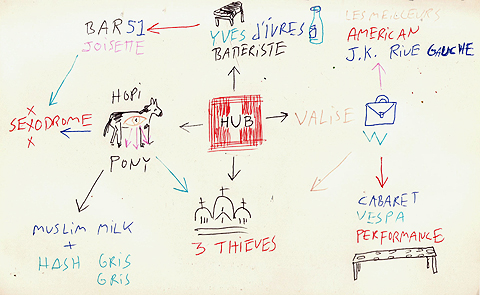 BAR 51
JOISETTE
YVES D'IVRES
BATTERISTE
LES MEILLEURS
AMERICAN
J.K. RIVE GAUCHE
SEXODROME
HOPI
PONY
HUB
VALISE
3 THIEVES
MUSLIM MILK
+
HASH GRIS
GRIS
CABARET
VESPA
PERFORMANCE